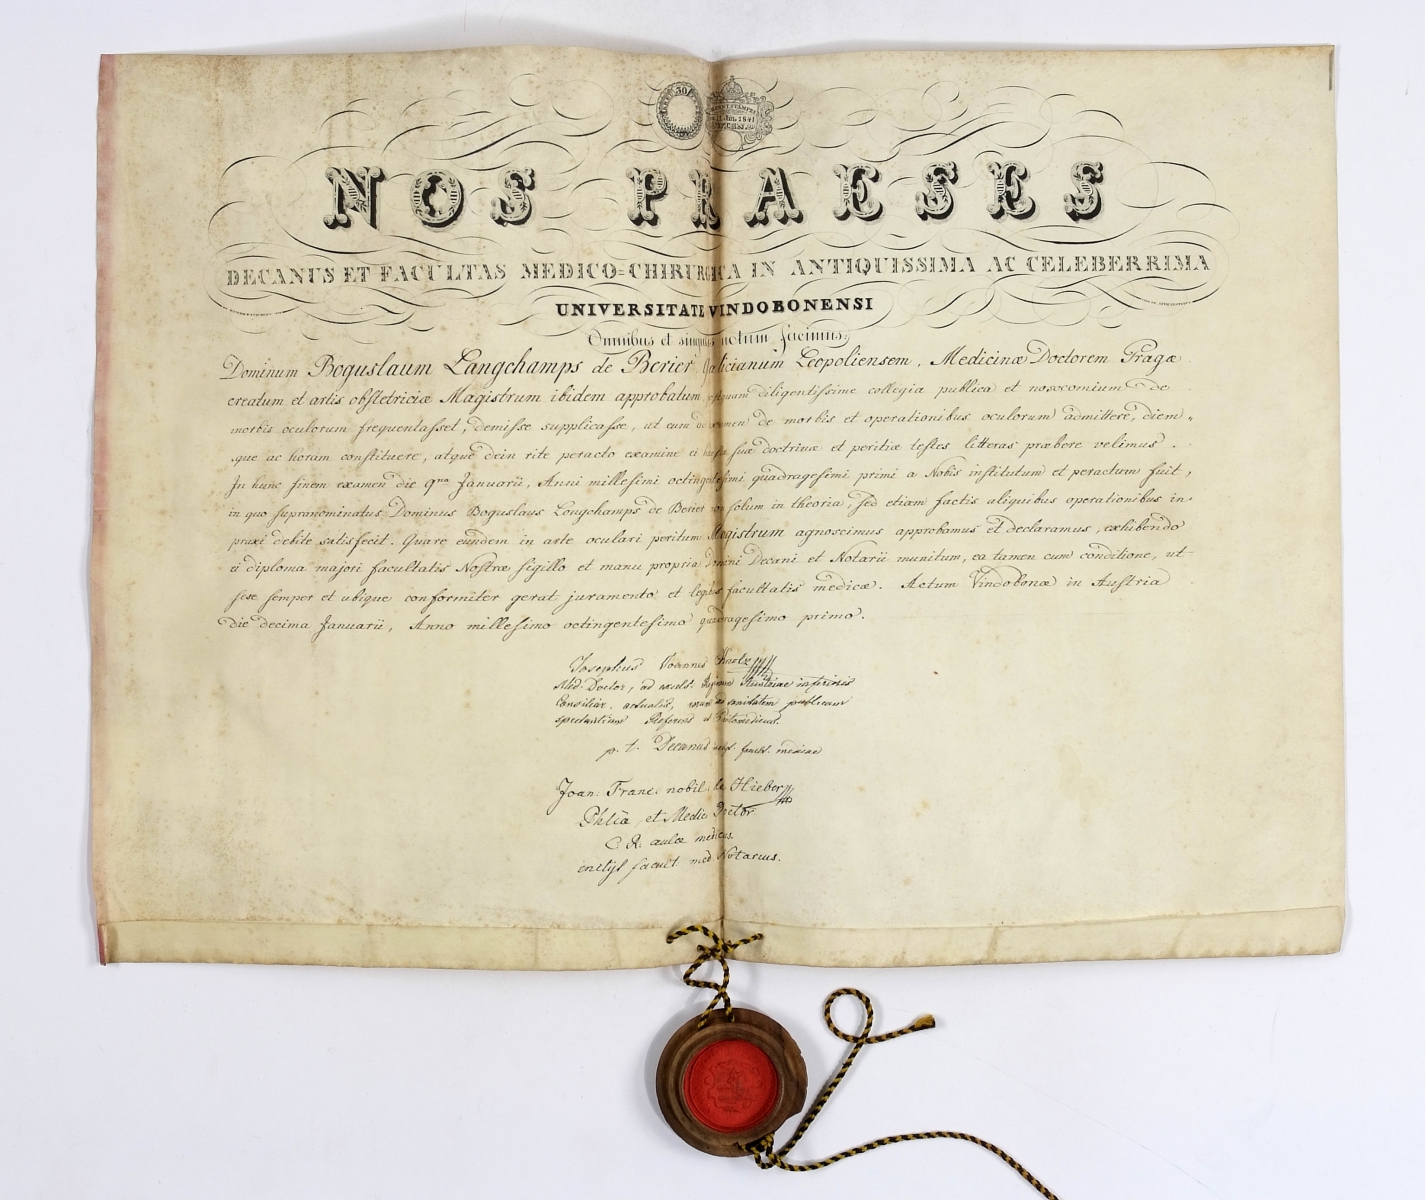 30
1841
NOS PRAESES
DECANUS ET FACULTAS MEDICO=CHIRURGICA IN ANTIQUISSIMA AC CELEBERRIMA
UNIVERSITATE VINDOBONENSI
Omnibus et singulis notum facimus:
Dominum Boguslaum Longchamps de Berier Galicianum Leopoliensem, Medicinæ Doctorem Pragæ
creatum et artis obstetriciæ Magistrum ibidem approbatum, postquam diligentissime collegia publica et nosocomium de
morbis oculorum frequentasset, demisse supplicasse, ut eum ad examen de morbis et operationibus oculorum admittere, diem-
que ac horam constituere, atque dein rite peracto examine ei hujus suæ doctrinæ et peritiæ testes litteras præbere velimus.
In hunc finem examen die 9na Januarii, Anni millesimi octingentesimi quadragesimi primi a Nobis institutum et peractum fuit,
in quo supranominatus Dominus Boguslaus Longchamps de Berier non solum in theoria, sed etiam factis aliquibus operationibus in
praxi debite satisfecit. Quare eundem in arte oculari peritum Magistrum agnoscimus approbamus et declaramus, exhibendo
ei diploma majori facultatis Nostræ sigillo et manu propria Domini Decani et Notarii munitum, ea tamen cum conditione, ut
sese semper et ubique conformiter gerat juramento et legibus facultatis medicæ. Actum Vindobonæ in Austria
die decima Januarii, Anno millesimo octingentesimo quadragesimo primo.
Josephus Joannes Knolz
Med. Doctor, ad excels. Regimen Austriae inferioris
Consiliar. actualis, rerum ad sanitatem publicam
spectantium Referens et Protomedicus.
p. t. Decanus facult. medicae
Joan. Franc. nobil. de Hieber
Phliæ et Medic. Doctor
C. R. aulæ medicus
inclyt facult. med. Notarius.